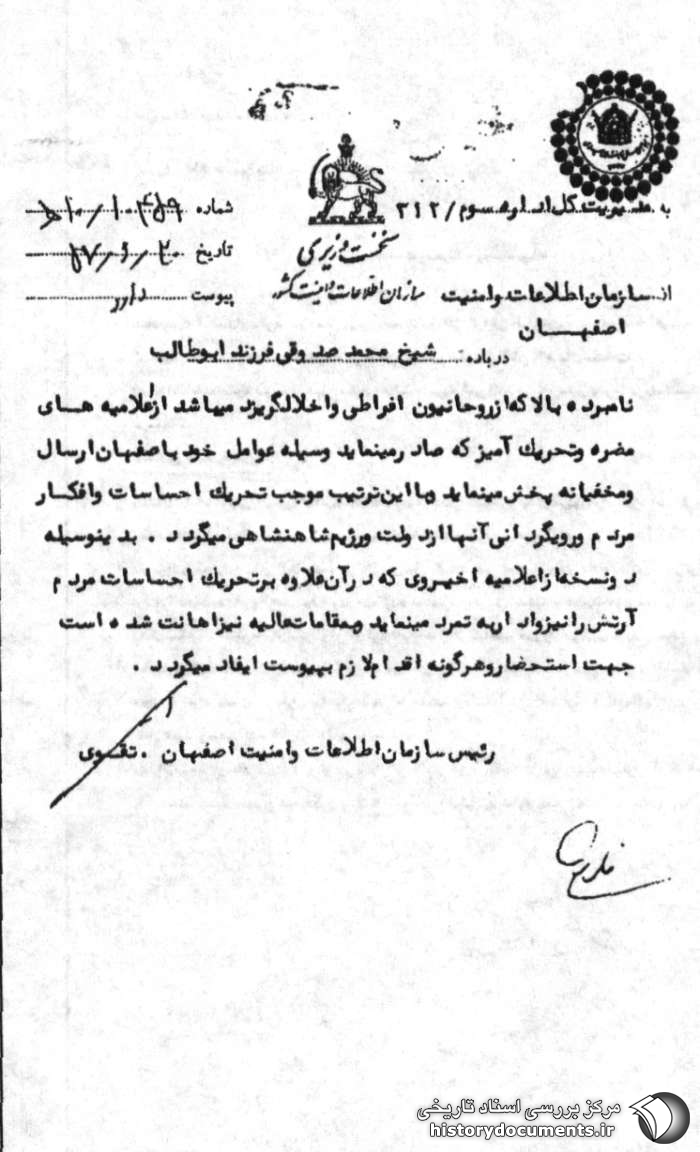 به مدیریت کل اداره سوم / ۳۱۲
شماره
نخست وزیری
تاریخ ۵۷/۶/۲۰
از سازمان اطلاعات و امنیت
سازمان اطلاعات و امنیت کشور
پیوست دارد
اصفهان
درباره: شیخ محمد صدوقی فرزند ابوطالب
نامبرده بالا که از روحانیون افراطی و اخلالگریزد میباشد از اعلامیه های
مضره و تحریك آمیز که صادر مینماید وسیله عوامل خود باصفهان ارسال
ومخفیانه پخش مینماید و با این ترتیب موجب تحریك احساسات و افکار
مردم و رویگردانی آنها از دولت و رژیم شاهنشاهی میگردد . بدینوسیله
دو نسخه از اعلامیه اخیروی که در آن علاوه بر تحریك احساسات مردم
آرتش را نیز وادار به تمرد مینماید و بمقامات عالیه نیز اهانت شده است
جهت استحضار و هرگونه اقدام لازم بپیوست ایفاد میگردد .
رئیس سازمان اطلاعات و امنیت اصفهان . تقوی
مرکز بررسی اسناد تاریخی
historydocuments.ir